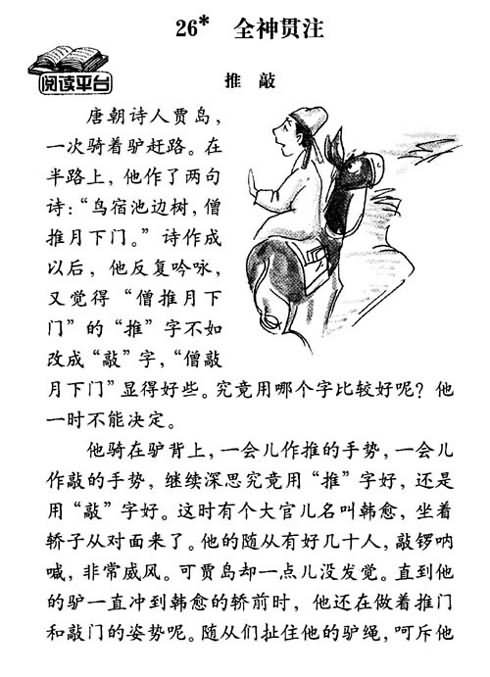 26* 全神贯注
阅读平台
推 敲
唐朝诗人贾岛，
一次骑着驴赶路。在
半路上，他作了两句
诗：“鸟宿池边树，僧
推月下门。”诗作成
以后，他反复吟咏，
又觉得“僧推月下
门”的“推”字不如
改成“敲”字，“僧敲
月下门”显得好些。究竟用哪个字比较好呢？他
一时不能决定。
他骑在驴背上，一会儿作推的手势，一会儿
作敲的手势，继续深思究竟用“推”字好，还是
用“敲”字好。这时有个大官儿名叫韩愈，坐着
轿子从对面来了。他的随从有好几十人，敲锣呐
喊，非常威风。可贾岛却一点儿没发觉。直到他
的驴一直冲到韩愈的轿前时，他还在做着推门
和敲门的姿势呢。随从们扯住他的驴绳，呵斥他